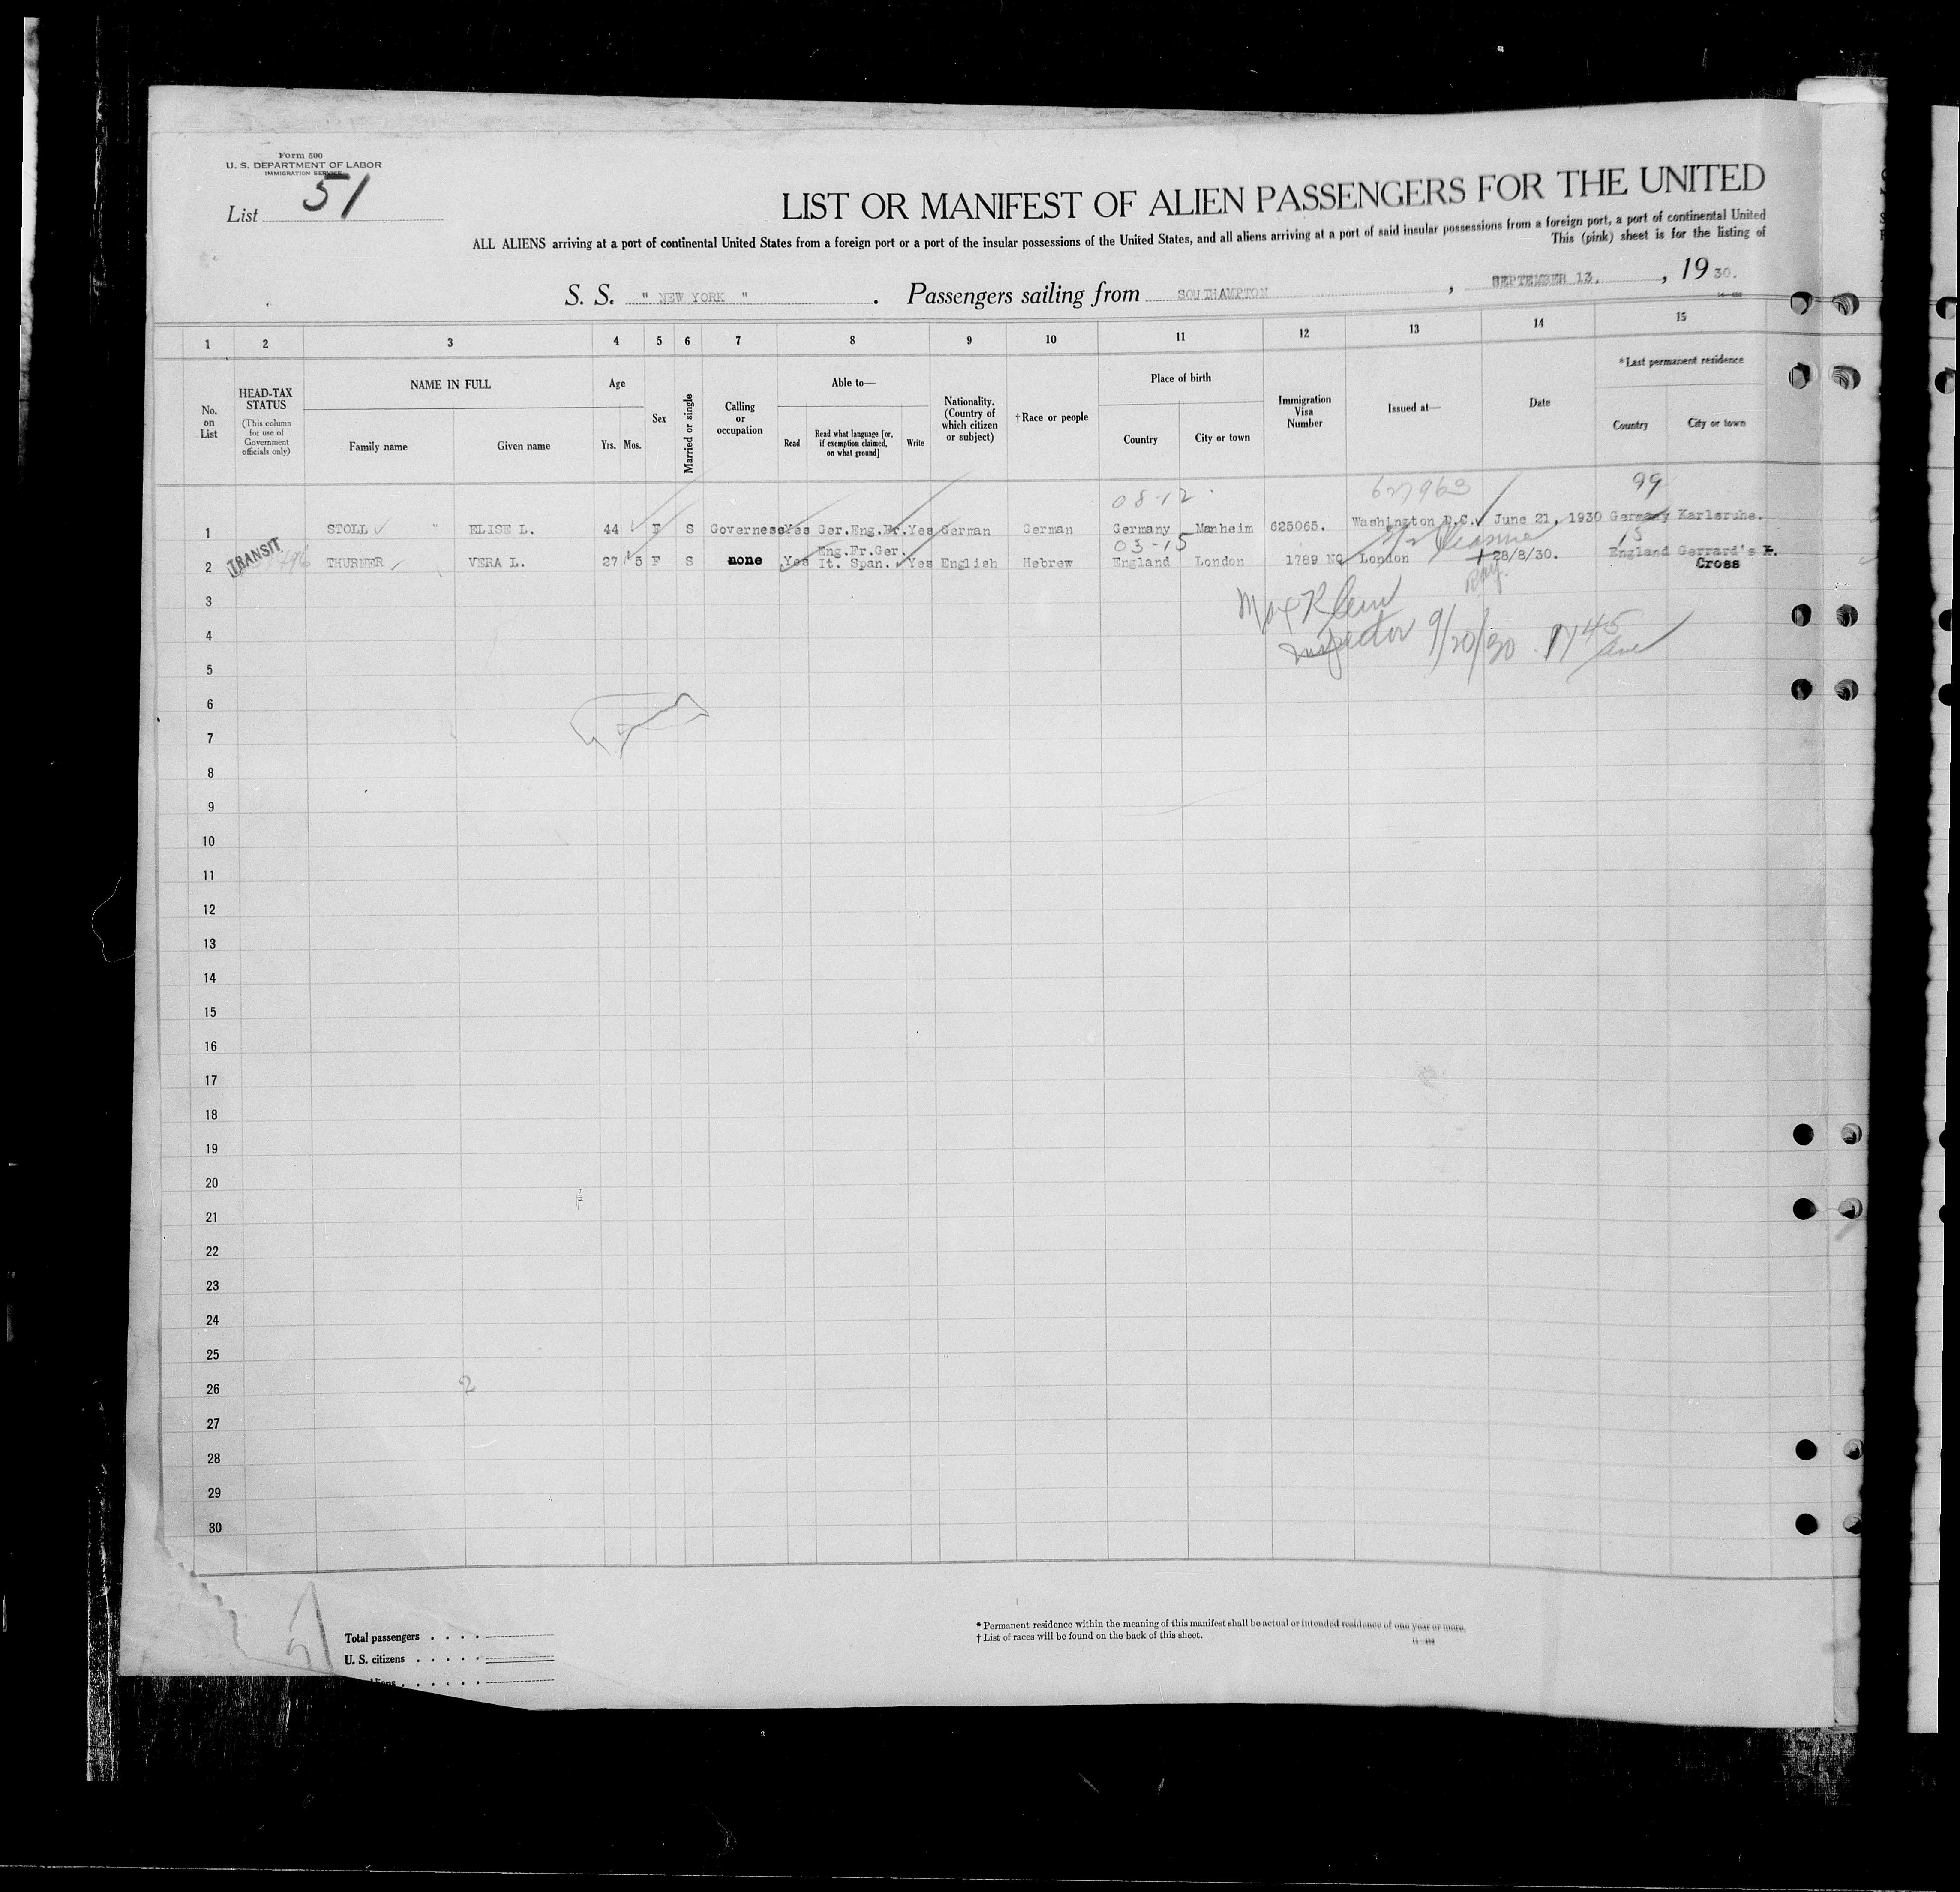 Form 500
U. S. DEPARTMENT OF LABOR
IMMIGRATION SERVICE
List 51
LIST OR MANIFEST OF ALIEN PASSENGERS FOR THE UNITED
ALL ALIENS arriving at a port of continental United States from a foreign port or a port of the insular possessions of the United States, and all aliens arriving at a port of said insular possessions from a foreign port, a port of continental United
This (pink) sheet is for the listing of
S. S. " NEW YORK " . Passengers sailing from SOUTHAMPTON , SEPTEMBER 13. , 19 30.
1 2 3 4 5 6 7 8 9 10 11 12 13 14 15
No. on List
HEAD-TAX STATUS
(This column for use of Government officials only)
NAME IN FULL
Family name Given name
Age
Yrs. Mos.
Sex
Married or single
Calling or occupation
Able to—
Read
Read what language [or, if exemption claimed, on what ground]
Write
Nationality. (Country of which citizen or subject)
†Race or people
Place of birth
Country City or town
Immigration Visa Number
Issued at—
Date
*Last permanent residence
Country City or town
08-12 627963 99
1 STOLL " ELISE L. 44 F S Governess Yes Ger.Eng.Fr. Yes German German Germany Manheim 625065. Washington D.C. June 21, 1930 Germany Karlsruhe.
03-15 15
2 TRANSIT THURNER VERA L. 27 5 F S none Yes Eng.Fr.Ger. It. Span. Yes English Hebrew England London 1789 NQ London 28/8/30. England Gerrard's Cross
3
Max Klein
4
Inspector 9/20/30
5
6
7
8
9
10
11
12
13
14
15
16
17
18
19
20
21
22
23
24
25
26 2
27
28
29
30
Total passengers . . . .
U. S. citizens . . . . .
* Permanent residence within the meaning of this manifest shall be actual or intended residence of one year or more.
† List of races will be found on the back of this sheet.